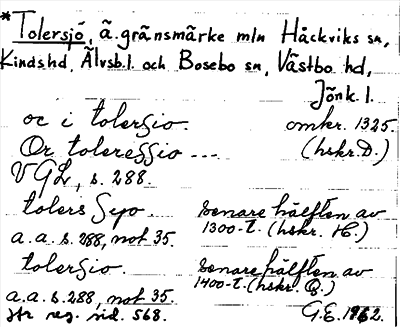 *Tolersjö, ä. gränsmärke mln Häckviks sn,
Kindshd, Älvsb.l. och Bosebo sn, Västbo hd,
Jönk. l.
oc i tolersio. omkr. 1325.
Or toleressio ... (hskr. D.)
VGL, s. 288.
tolers Syo. senare hälften av
1300-t. (hskr. H.)
a.a. s. 288, not 35.
tolersio. senare hälften av
1400-t. (hskr. Q.)
a.a. s. 288, not 35.
jfr reg. sid. 568. G.E. 1962.